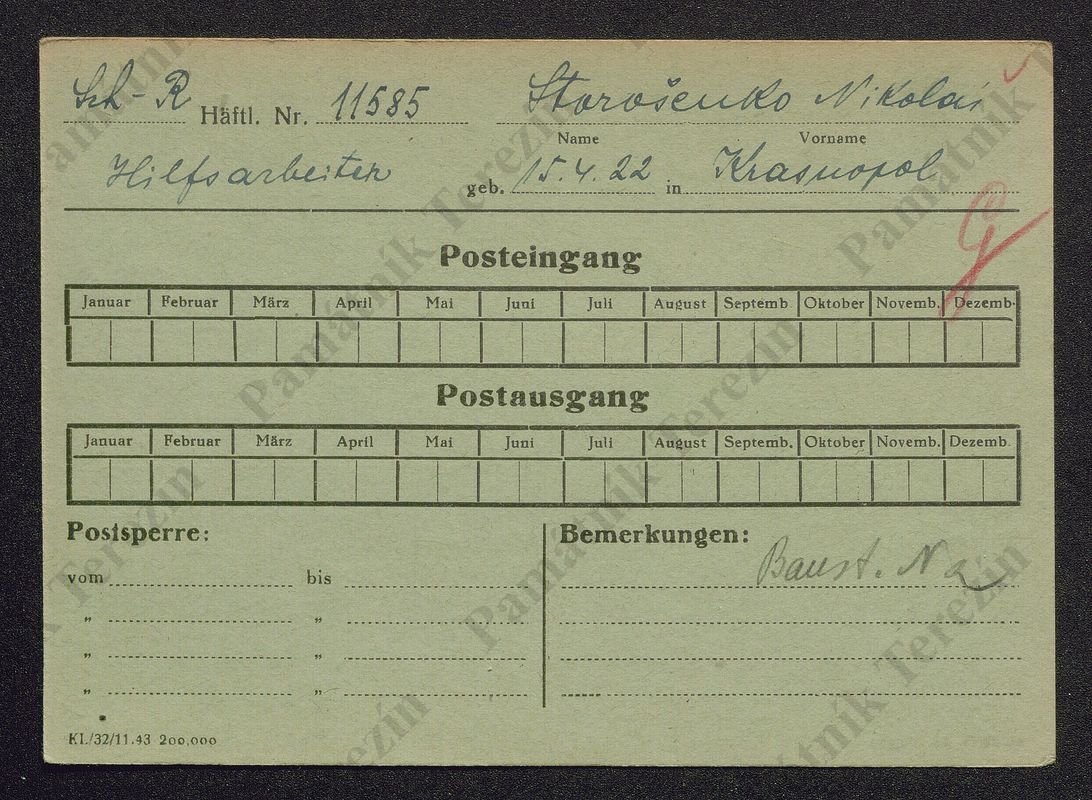 Sch-R Häftl. Nr. 11585 Storošenko Nikolai
Name Vorname
Hilfsarbeiter geb. 15.4.22 in Krasnopol
Posteingang
Januar Februar März April Mai Juni Juli August Septemb. Oktober Novemb. Dezemb.
Postausgang
Januar Februar März April Mai Juni Juli August Septemb. Oktober Novemb. Dezemb.
Postsperre: Bemerkungen:
Baust.
vom bis
" "
" "
" "
KL/32/11.43 200.000
Památník Terezín